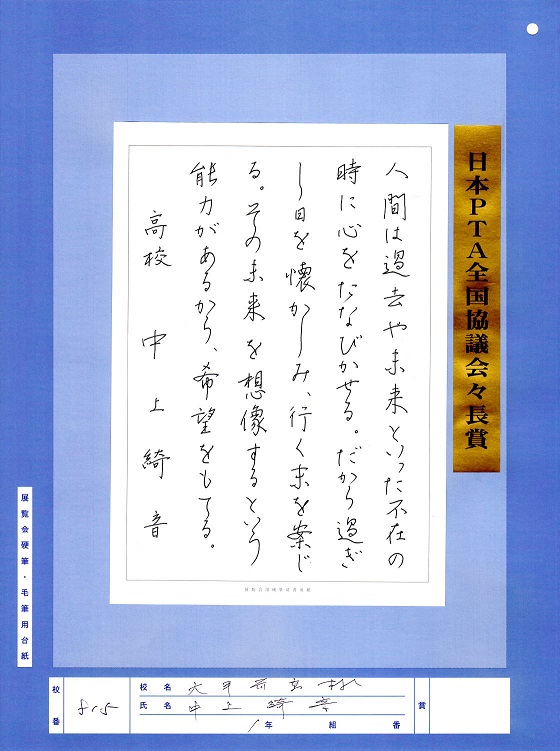 日本PTA全国協議会々長賞
人間は過去や未来といった不在の
時に心をたなびかせる。だから過ぎ
し日を懐かしみ、行く末を案じ
る。その未来を想像するという
能力があるから、希望をもてる。
高校 中上綺音
展覧会硬筆・毛筆用台紙
校番
校名
氏名 中上綺音
1年 組 番
賞